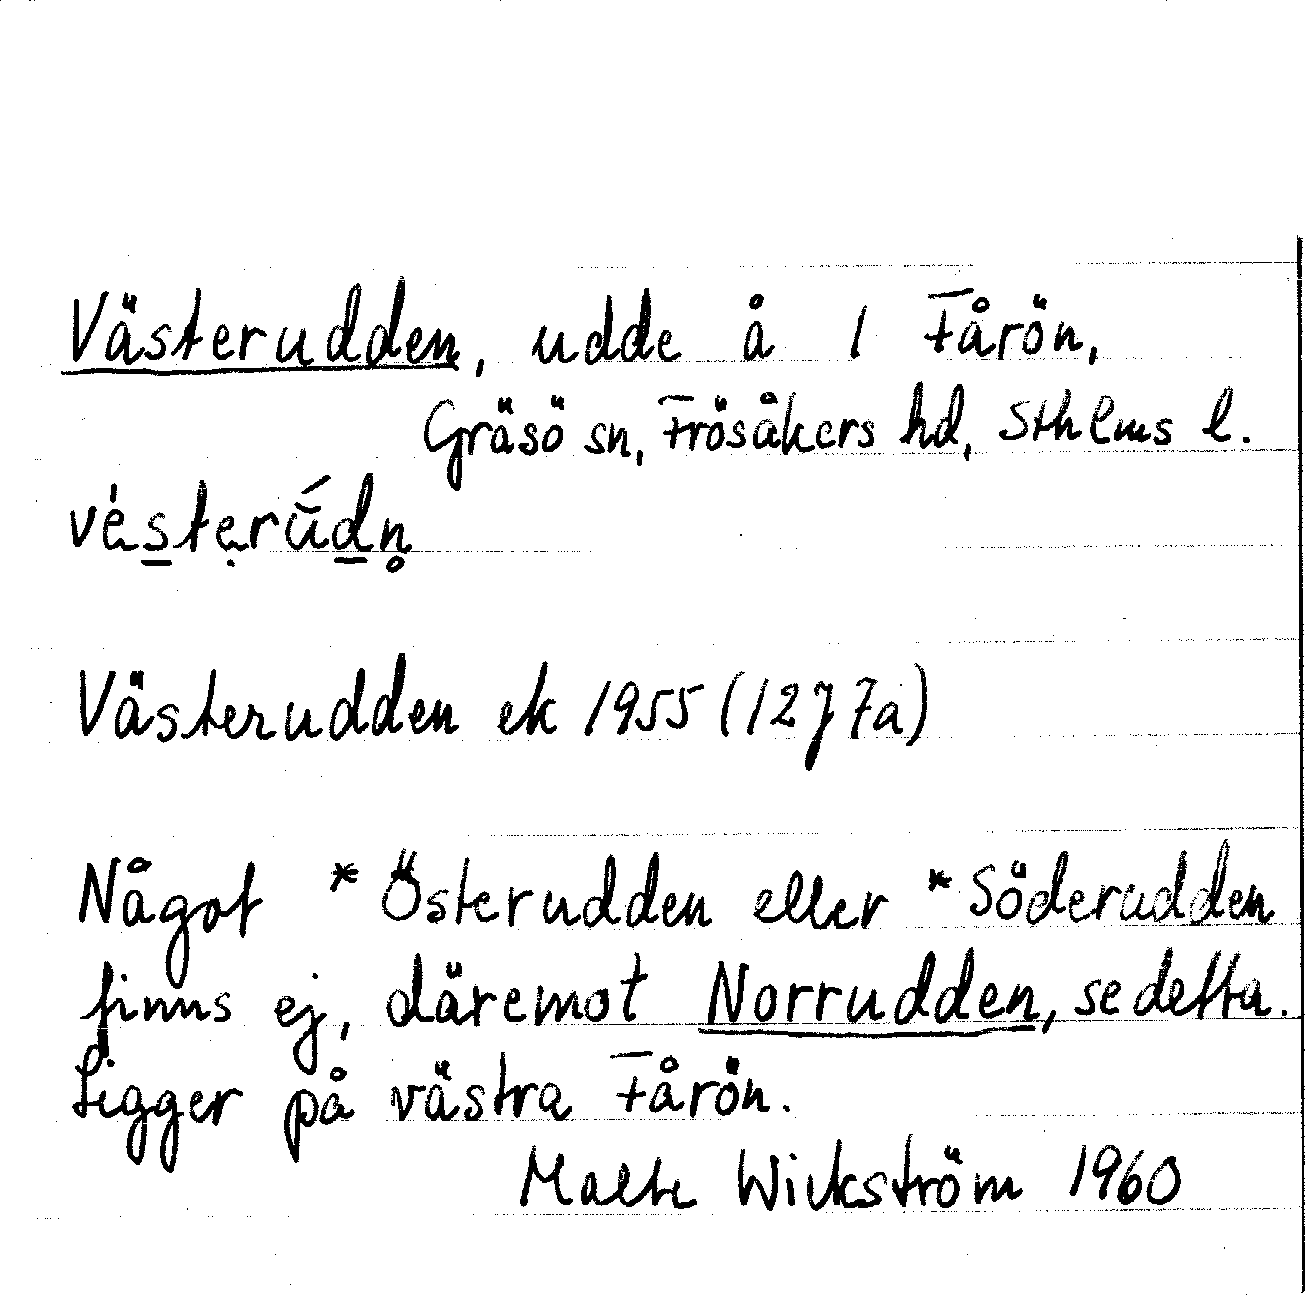 Västerudden, udde å 1 Fårön,
Gräsö sn, Frösåkers hd, Sthlms l.
vésterúdn̥
Västerudden ek 1955 (12J 7a)
Något *Österudden eller *Söderudden
finns ej, däremot Norrudden, se detta.
Ligger på västra Fårön.
Malte Wickström 1960